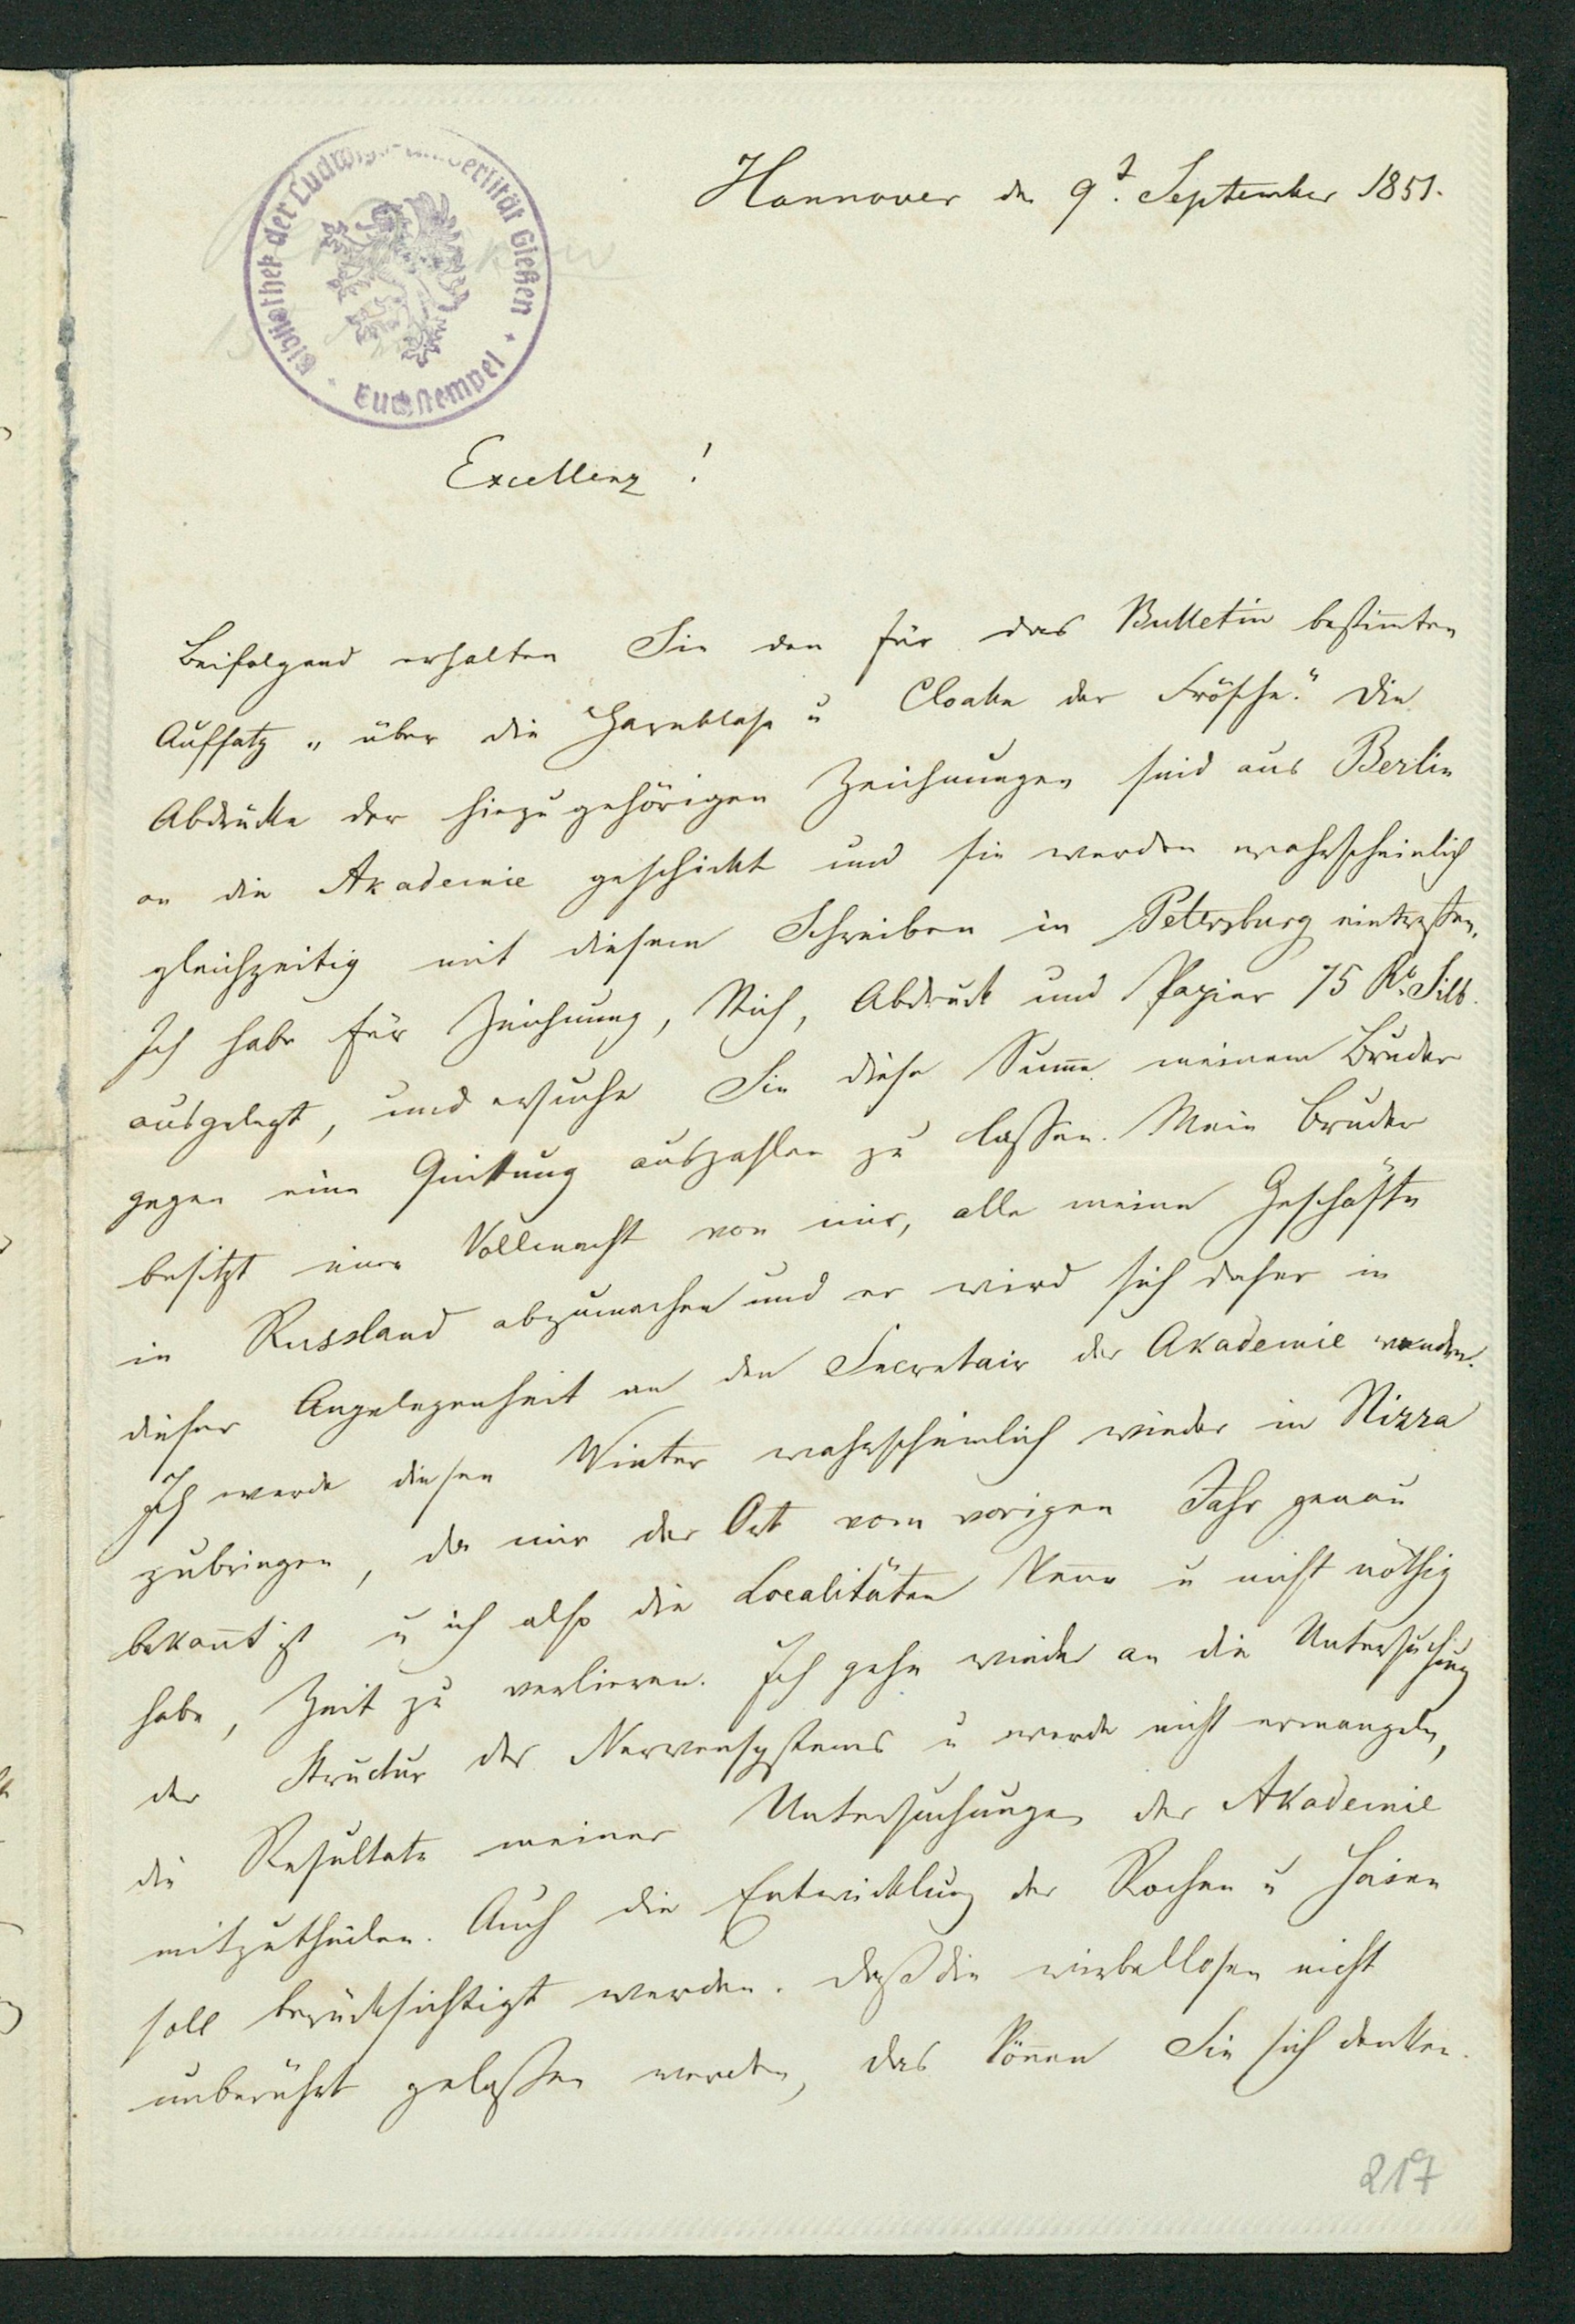 Hannover den 9t. September 1851.
Bibliothek der Ludwigs-Universität Gießen
Buchstempel
Excellenz!
Beifolgend erhalten Sie den für das Bulletin bestim̄ten
Aufsatz „über die Harnblase u Cloake der Frösche." Die
Abdrücke der hiezu gehörigen Zeichnungen sind aus Berlin
an die Akademie geschickt und sie werden wahrscheinlich
gleichzeitig mit diesem Schreiben in Petersburg eintreffen.
Ich habe für Zeichnung, Stich, Abdruck und Papier 75 Rb. Silb.
ausgelegt, und ersuche Sie diese Sum̄e meinem Bruder
gegen eine Quittung auszahlen zu lassen. Mein Bruder
besitzt eine Vollmacht von mir, alle meine Geschäfte
in Russland abzumachen und er wird sich daher in
dieser Angelegenheit an den Secretair der Akademie wenden.
Ich werde diesen Winter wahrscheinlich wieder in Nizza
zubringen, da mir der Ort vom vorigen Jahr genau
bekan̄t ist u ich also die Localitäten ken̄e u nicht nöthig
habe, Zeit zu verlieren. Ich gehe wieder an die Untersuchung
der Structur des Nervensystems u werde nicht ermangeln,
die Resultate meiner Untersuchungen der Akademie
mitzutheilen. Auch die Entwicklung der Rochen u Haien
soll berücksichtigt werden. Daß die wirbellosen nicht
unberührt gelassen werden, das kön̄en Sie sich denken.
217